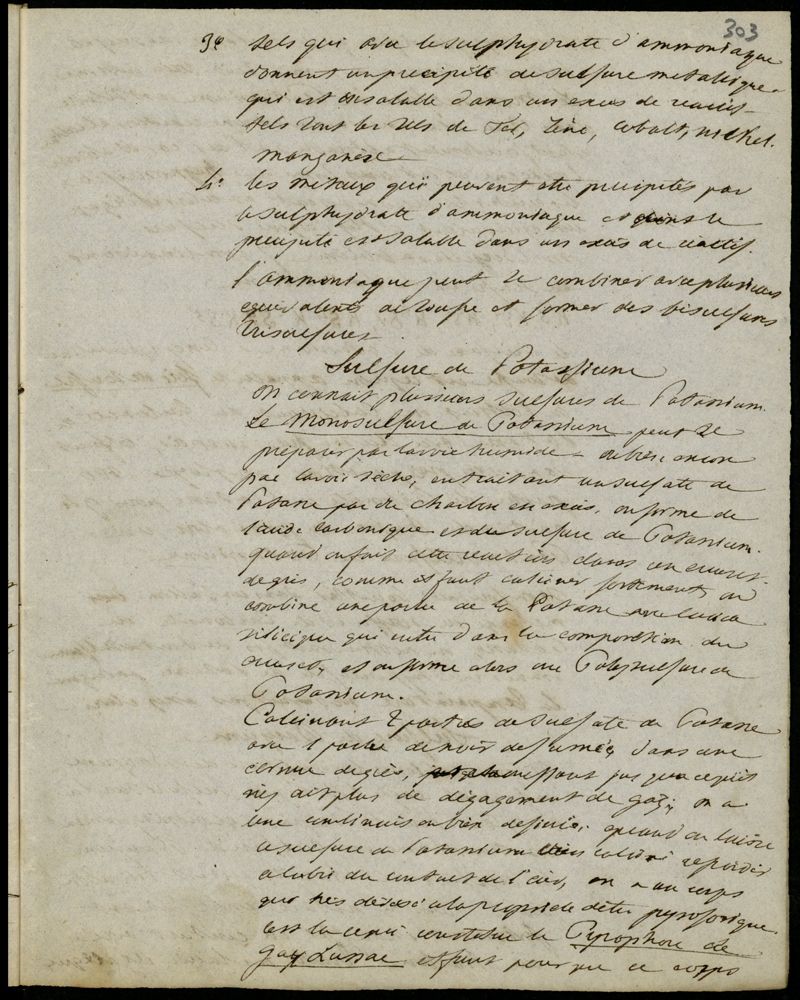 303
3º sels qui avec le sulphydrate d'ammoniaque
donnent un precipité de sulfure metallique
qui est insoluble dans un exces de reactif
tels sont les sels de Fer, Zinc, Cobalt, nickel.
manganèse
4º les metaux qui peuvent etre precipités par
le sulphydrate d'ammoniaque et dont le
precipité est soluble dans un exces de reactif.
l'ammoniaque peut se combiner avec plusieurs
equivalents de soufre et former des bisulfures
trisulfures
Sulfure de Potassium
On connait plusieurs sulfures de Potassium.
Le Monosulfure de Potassium peut se
préparer par la voie humide ou bien encore
par la voie sèche, en traitant un sulfate de
Potasse par du charbon en excès, on forme de
l'acide carbonique et du sulfure de Potassium.
quand on fait cette reaction dans un creuset
de grès, comme il faut calciner fortement, on
combine une partie de la Potasse avec l'acide
silicique qui entre dans la composition du
creuset, et on forme alors un Polysulfure de
Potassium.
Calcinant 2 parties de sulfate de Potasse
avec 1 partie de noir de fumée, dans une
cornue de grès, chauffant jusqu'a ce qu'il
n'y ait plus de dégagement de gaz, on a
une combinaison bien definie; quand on laisse
le sulfure de Potassium calciné refroidir
a l'abri du contact de l'air, on a un corps
qui tres divisé a la propriete d'etre pyroforique.
c'est la ce qui constitue le Pyrophore de
Gay Lussac il faut pour que ce corps